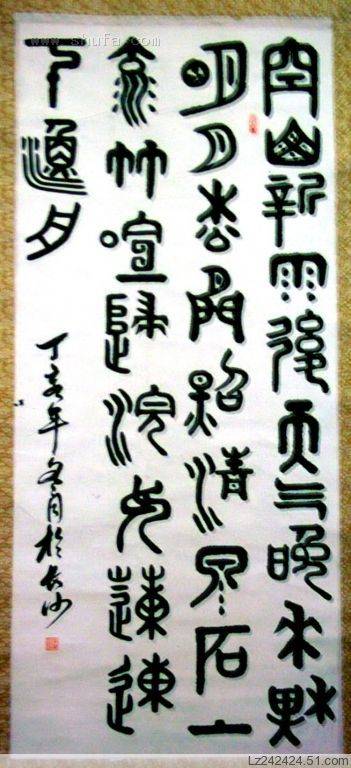 www.shufa.com
空山新雨後天气晚来秋
明月松間照清泉石上
流竹喧歸浣女蓮動
下漁舟
丁亥年冬月於长沙
Lz242424.51.com